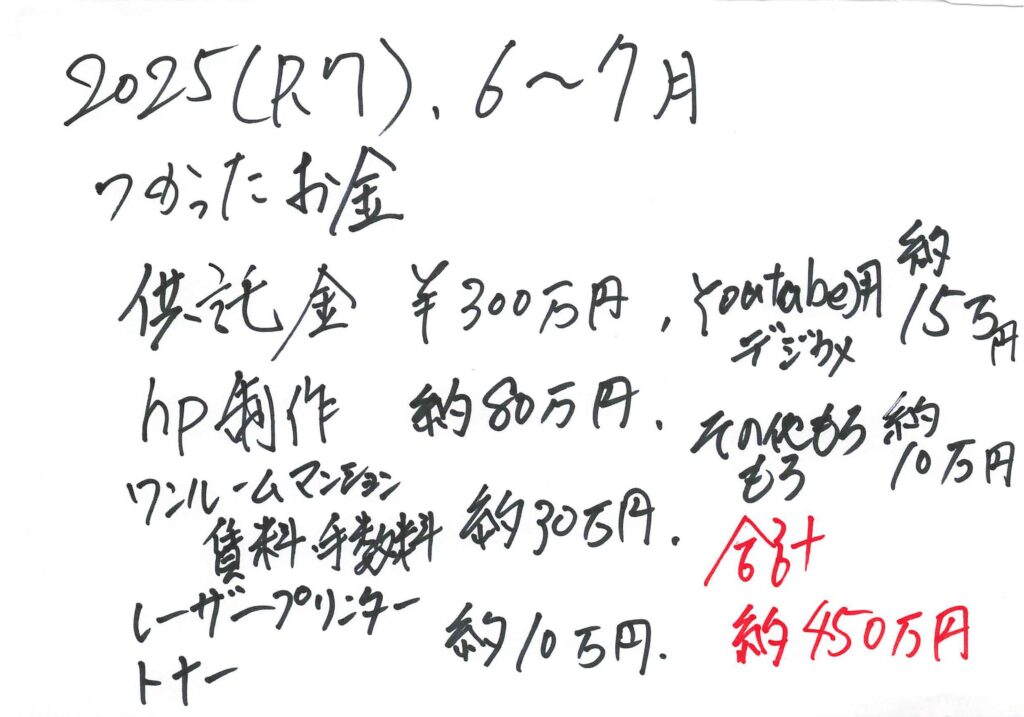 2025(R7)、6〜7月
つかったお金
供託金 ¥300万円、
hp制作 約80万円、
ワンルームマンション
賃料・手数料 約30万円、
レーザープリンター
トナー 約10万円、
Youtube用
デジカメ
約
15万円
その他もろ
もろ
約
10万円
合計
約450万円